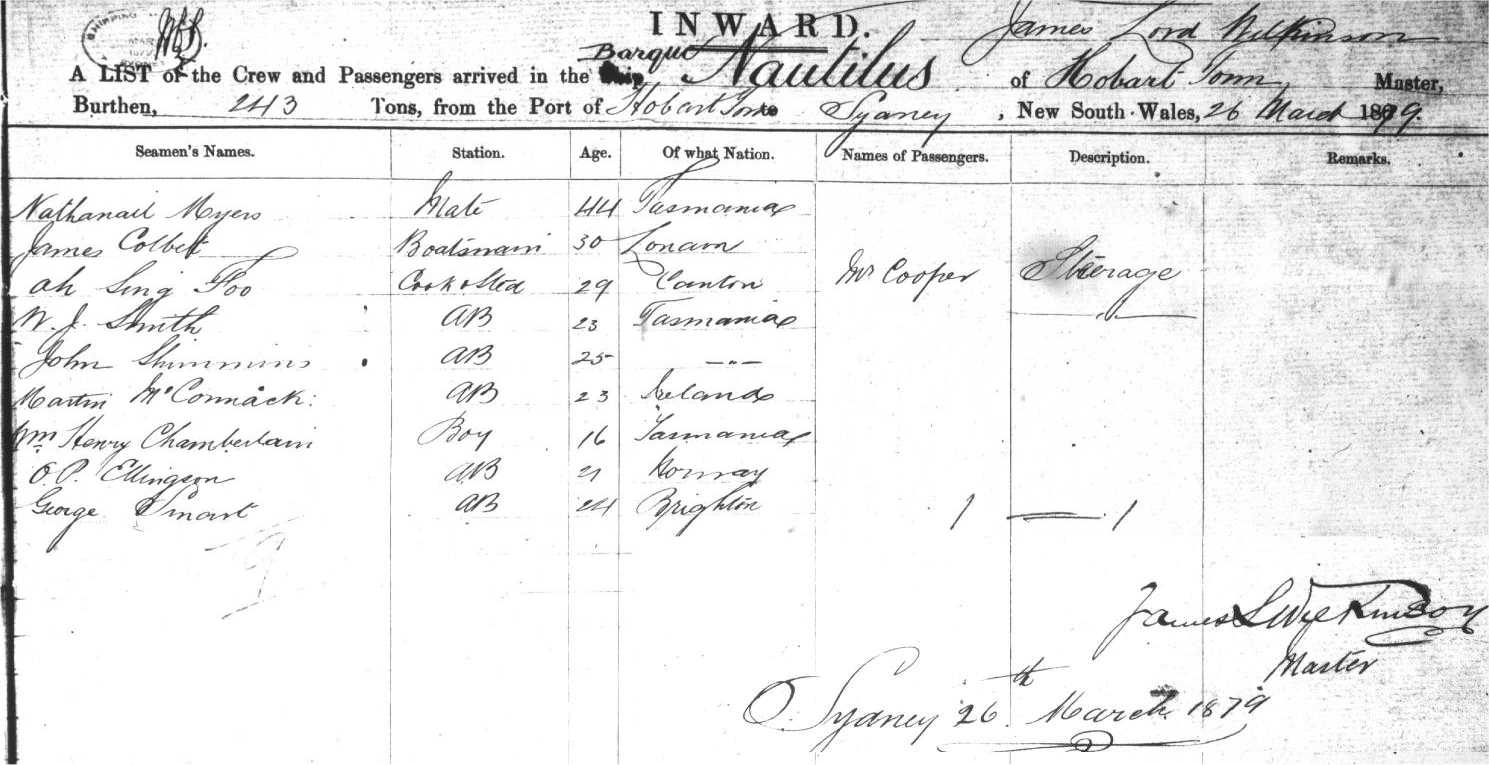 INWARD.
James Lord Wilkinson
Barque
A LIST of the Crew and Passengers arrived in the Ship Nautilus of Hobart Town Master,
Burthen, 243 Tons, from the Port of Hobart Town to Sydney, New South Wales, 26 March 1879.
Seamen's Names. Station. Age. Of what Nation. Names of Passengers. Description. Remarks.
Nathanail Myers Mate 44 Tasmania
James Colbet Boatswain 30 London
Ah Sing Foo Cook & Sted 29 Canton Mr Cooper Steerage
W. J. Smith AB 23 Tasmania "
John Shimmins AB 25 "
Martin McCormack AB 23 Ireland
Wm Henry Chamberlain Boy 16 Tasmania
O. P. Ellingson AB 21 Norway
George Smart AB 24 Brighton 1 1
9
James L Wilkinson
Master
Sydney 26th March 1879